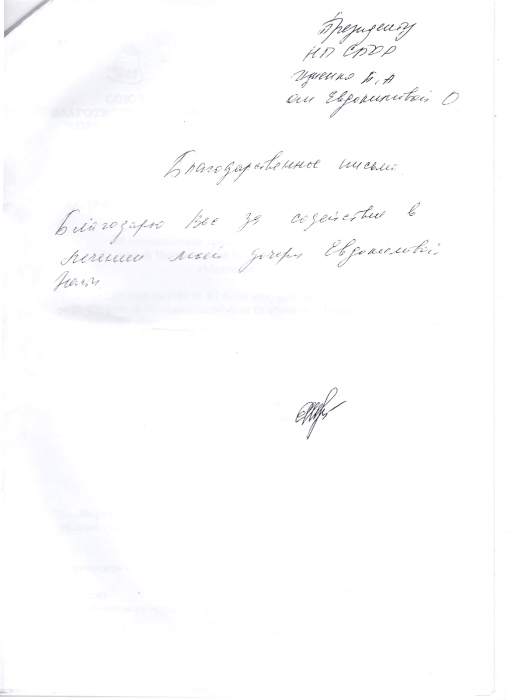 Президенту
НП СБОР
Ищенко Б.А
от Евдокимовой О
Благодарственное письмо.
Благодарю Вас за содействие в
лечении моей дочери Евдокимовой